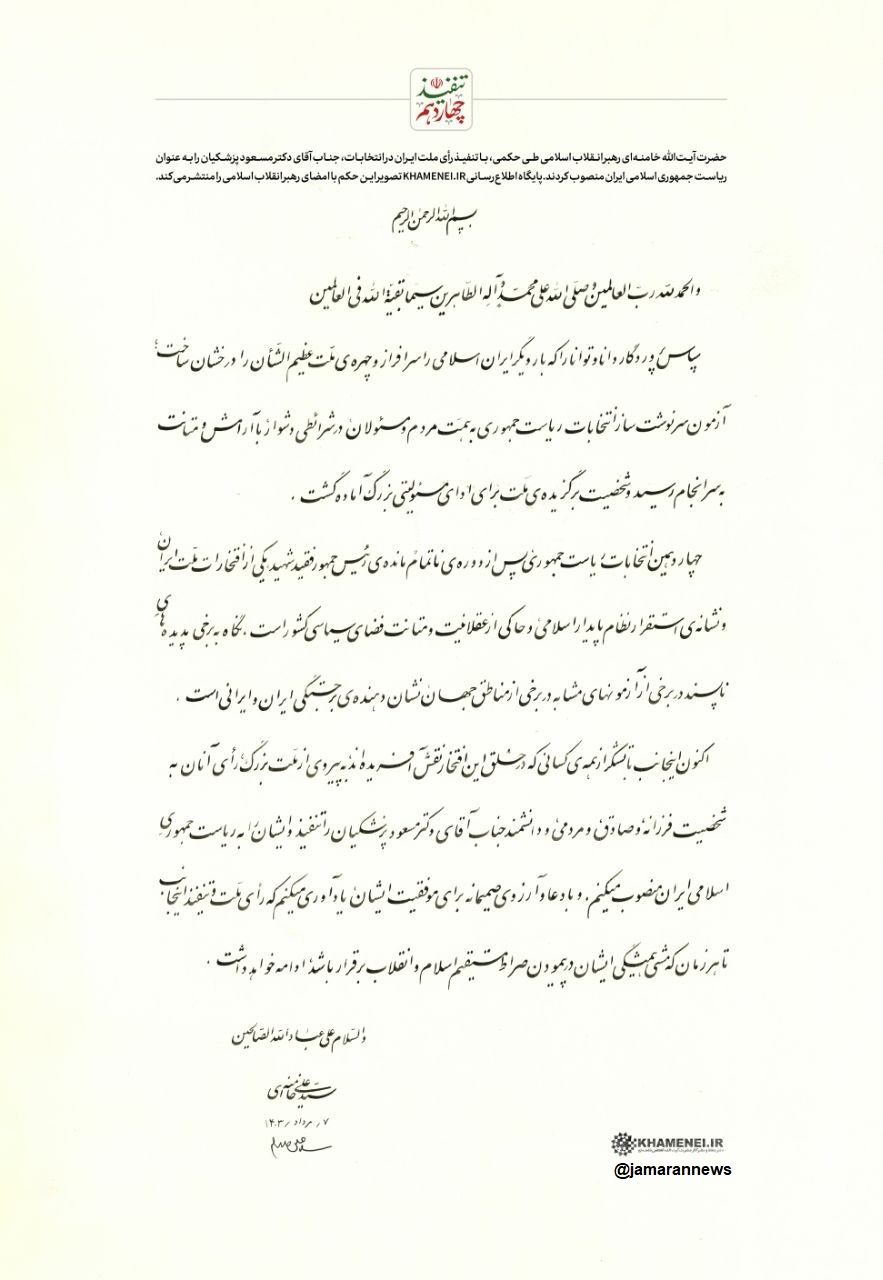 تنفیذ
چهاردهم
حضرت آیت‌الله خامنه‌ای رهبر انقلاب اسلامی طی حکمی، با تنفیذ رأی ملت ایران در انتخابات، جناب آقای دکتر مسعود پزشکیان را به عنوان
ریاست جمهوری اسلامی ایران منصوب کردند. پایگاه اطلاع‌رسانی KHAMENEI.IR تصویر این حکم با امضای رهبر انقلاب اسلامی را منتشر می‌کند.
بسم الله الرحمن الرحیم
والحمد لله رب العالمین و صلّی الله علی محمّد و آله الطاهرین سیما بقیة الله فی العالمین
سپاس پروردگار دانا و توانا را که بار دیگر ایران اسلامی را سرافراز و چهره‌ی ملّت عظیم‌الشّأن را درخشان ساخت؛
آزمون سرنوشت‌ساز انتخابات ریاست جمهوری به همّت مردم و مسئولان در شرائطی دشوار با آرامش و متانت
به سرانجام رسید و شخصیت برگزیده‌ی ملّت برای ادای مسئولیتی بزرگ آماده گشت .
چهاردهمین انتخابات ریاست جمهوری پس از دوره‌ی ناتمام مانده‌ی رئیس جمهور فقید شهید یکی از افتخارات ملّت ایران
و نشانه‌ی استقرار نظام پایدار اسلامی و حاکی از عقلانیت و متانت فضای سیاسی کشور است . نگاه به برخی پدیده‌های
ناپسند در برخی از آزمونهای مشابه در برخی از مناطق جهان نشان دهنده‌ی برجستگی ایران و ایرانی است .
اکنون اینجانب با تشکر از همه‌ی کسانی که در خلق این افتخار نقش آفریده‌اند به پیروی از ملّت بزرگ رأی آنان به
شخصیت فرزانه و صادق و مردمی و دانشمند جناب آقای دکتر مسعود پزشکیان را تنفیذ و ایشان را به ریاست جمهوری
اسلامی ایران منصوب میکنم، و با دعا و آرزوی صمیمانه برای موفقیت ایشان یادآوری میکنم که رأی ملّت و تنفیذ اینجانب
تا هر زمان که مشی همیشگی ایشان در پیمودن صراط مستقیم اسلام و انقلاب برقرار باشد ادامه خواهد داشت .
والسّلام علی عباد الله الصّالحین
سیّد علی خامنه‌ای
۷ / مرداد / ۱۴۰۳
KHAMENEI.IR
@jamarannews